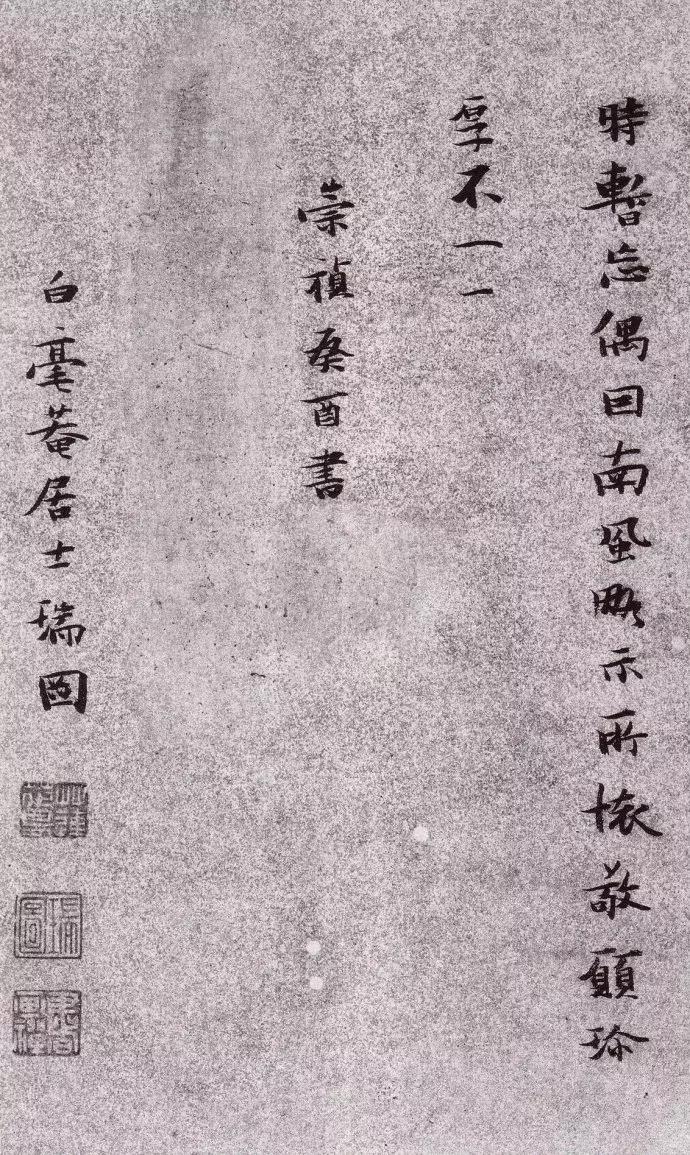 時暫忘偶因南風略示所懷敬願珍
厚不一一
崇禎癸酉書
白毫菴居士瑞圖
瑞圖